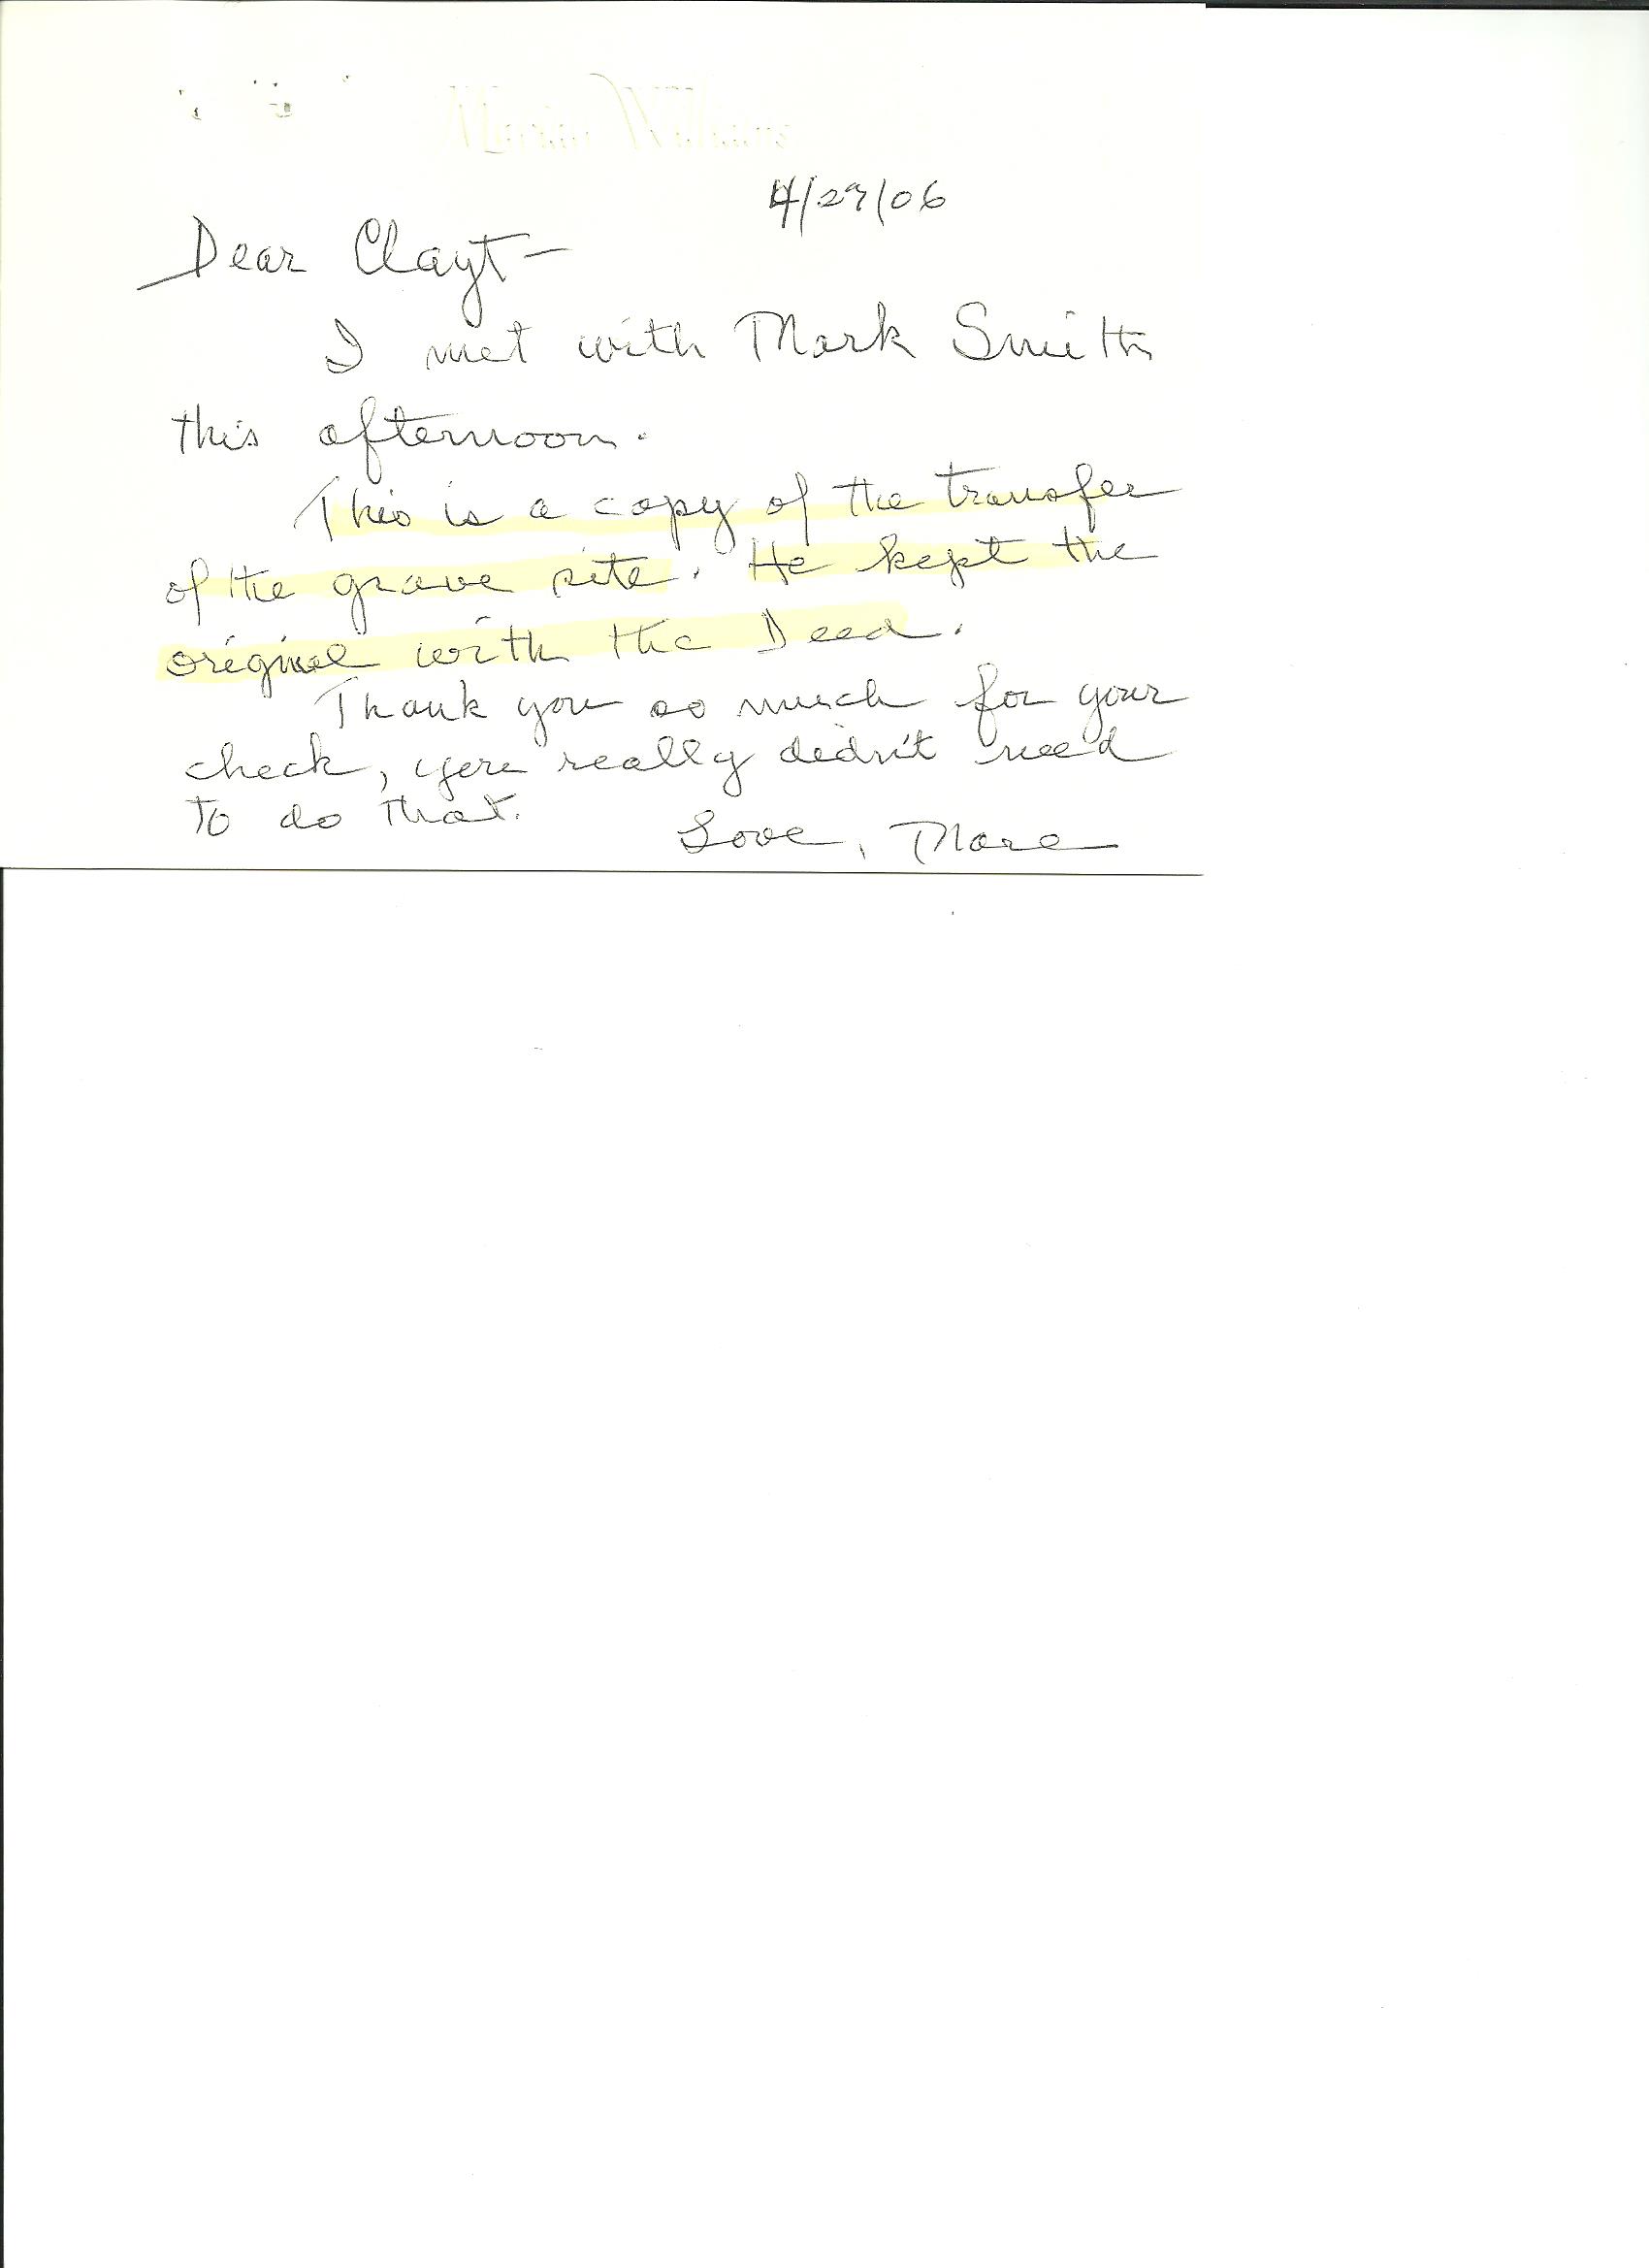 Williams
4/29/06
Dear Clayt -
I met with Mark Smith
this afternoon.
This is a copy of the transfer
of the grave site. He kept the
original with the Deed.
Thank you so much for your
check, you really didn't need
to do that.
Love,